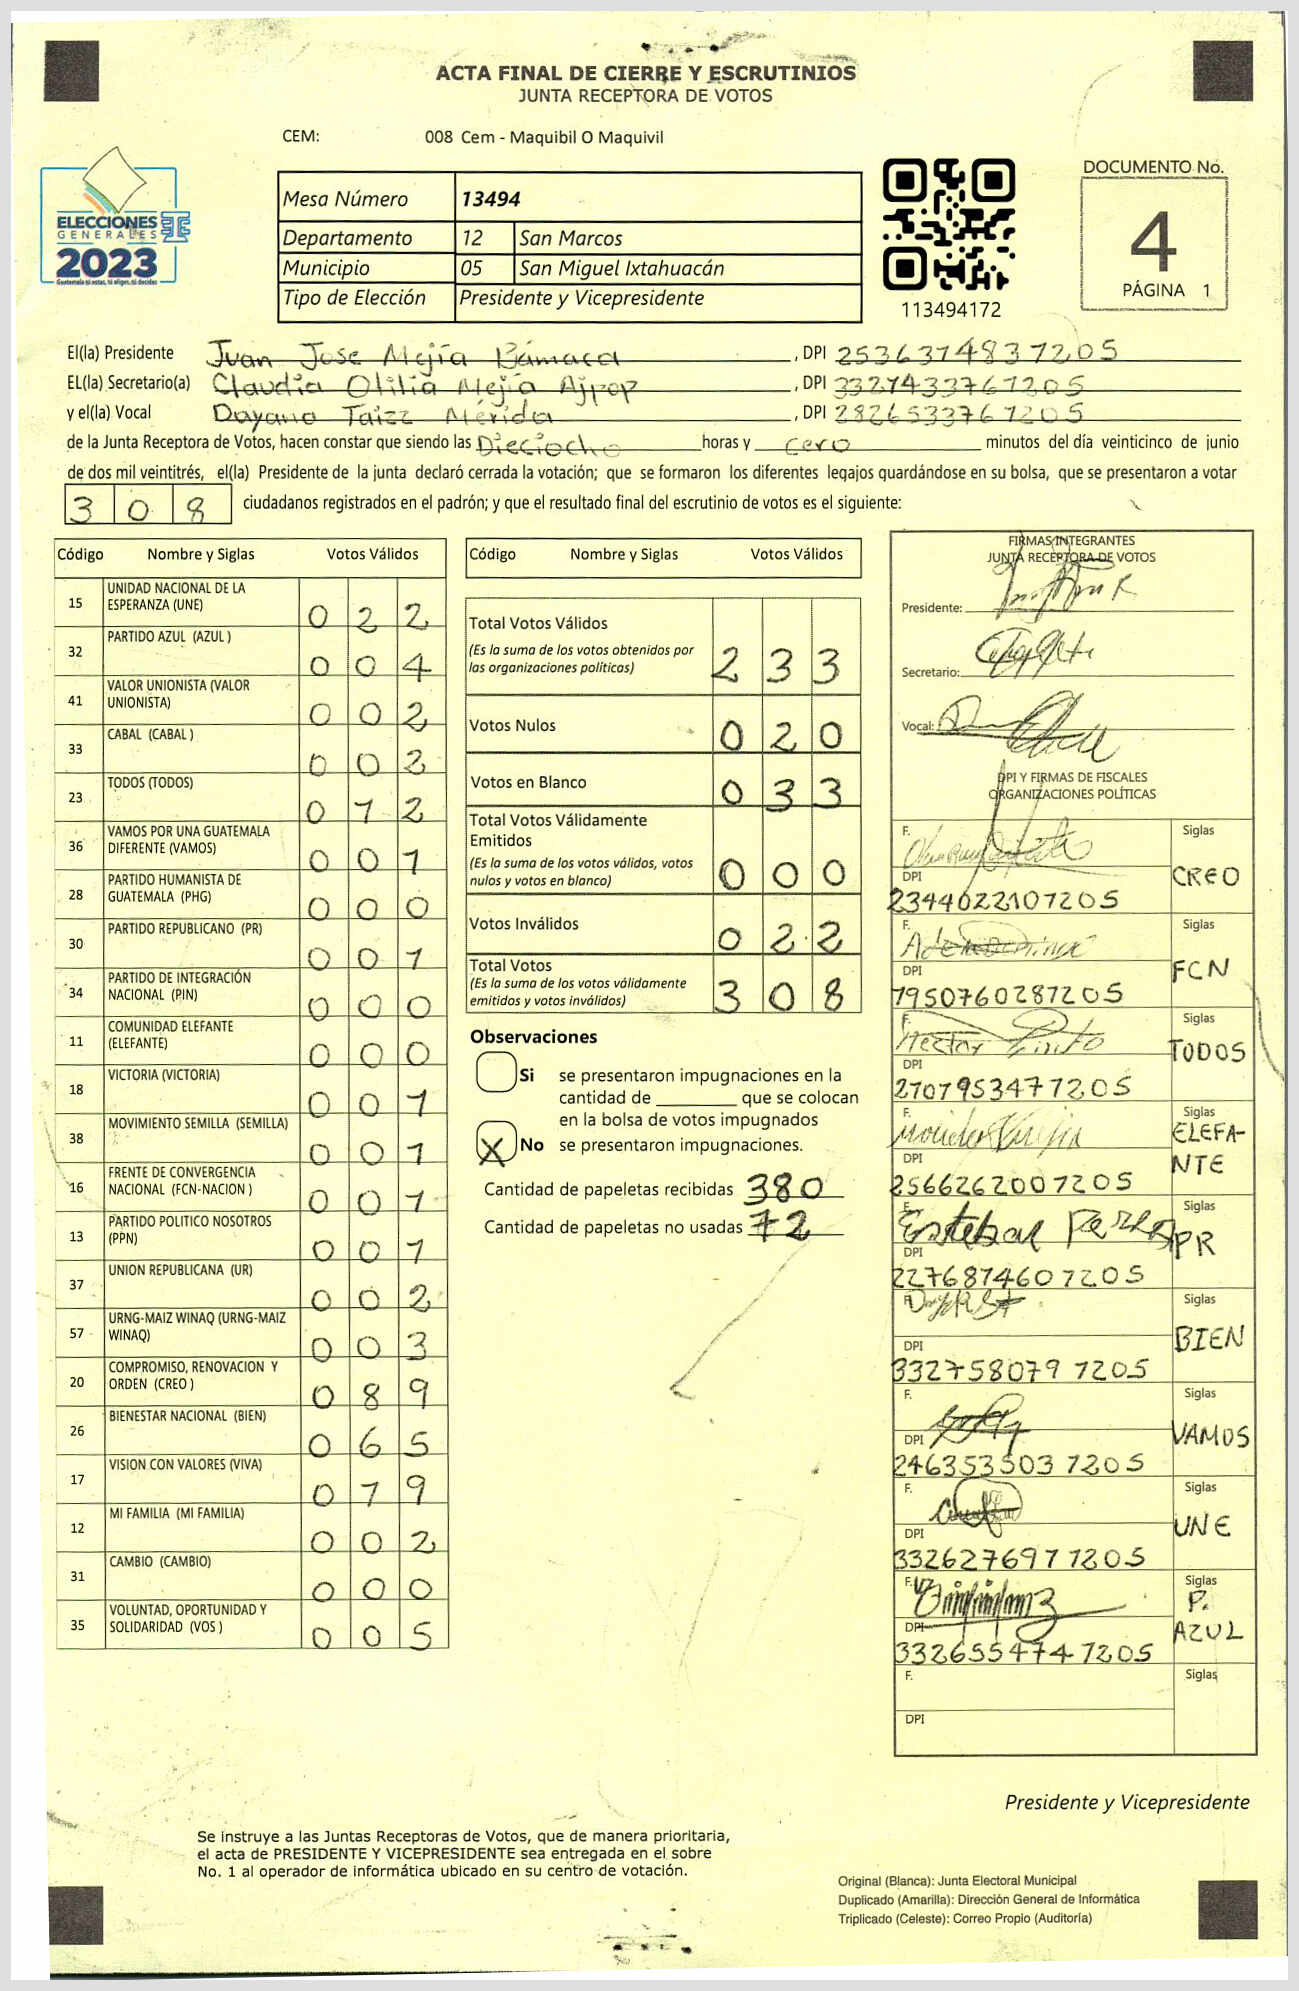 ACTA FINAL DE CIERRE Y ESCRUTINIOS
JUNTA RECEPTORA DE VOTOS
CEM: 008 Cem - Maquibil O Maquivil
ELECCIONES
GENERALES
2023
Guatemala tú votas, tú eliges, tú decides
Mesa Número 13494
Departamento 12 San Marcos
Municipio 05 San Miguel Ixtahuacán
Tipo de Elección Presidente y Vicepresidente
113494172
DOCUMENTO No.
4
PÁGINA 1
El(la) Presidente Juan Jose Mejía Bámaca , DPI 2536374837205
EL(la) Secretario(a) Claudia Otilia Mejía Ajpop , DPI 3327433761205
y el(la) Vocal Dayana Taizz Mérida , DPI 2826533761205
de la Junta Receptora de Votos, hacen constar que siendo las Dieciocho horas y cero minutos del día veinticinco de junio
de dos mil veintitrés, el(la) Presidente de la junta declaró cerrada la votación; que se formaron los diferentes legajos quardándose en su bolsa, que se presentaron a votar
308 ciudadanos registrados en el padrón; y que el resultado final del escrutinio de votos es el siguiente:
Código Nombre y Siglas Votos Válidos
15 UNIDAD NACIONAL DE LA ESPERANZA (UNE) 022
32 PARTIDO AZUL (AZUL ) 004
41 VALOR UNIONISTA (VALOR UNIONISTA) 002
33 CABAL (CABAL ) 002
23 TODOS (TODOS) 012
36 VAMOS POR UNA GUATEMALA DIFERENTE (VAMOS) 001
28 PARTIDO HUMANISTA DE GUATEMALA (PHG) 000
30 PARTIDO REPUBLICANO (PR) 001
34 PARTIDO DE INTEGRACIÓN NACIONAL (PIN) 000
11 COMUNIDAD ELEFANTE (ELEFANTE) 000
18 VICTORIA (VICTORIA) 001
38 MOVIMIENTO SEMILLA (SEMILLA) 001
16 FRENTE DE CONVERGENCIA NACIONAL (FCN-NACION ) 001
13 PARTIDO POLITICO NOSOTROS (PPN) 001
37 UNION REPUBLICANA (UR) 002
57 URNG-MAIZ WINAQ (URNG-MAIZ WINAQ) 003
20 COMPROMISO, RENOVACION Y ORDEN (CREO ) 089
26 BIENESTAR NACIONAL (BIEN) 065
17 VISION CON VALORES (VIVA) 019
12 MI FAMILIA (MI FAMILIA) 002
31 CAMBIO (CAMBIO) 000
35 VOLUNTAD, OPORTUNIDAD Y SOLIDARIDAD (VOS ) 005
Código Nombre y Siglas Votos Válidos
Total Votos Válidos
(Es la suma de los votos obtenidos por
las organizaciones políticas) 233
Votos Nulos 020
Votos en Blanco 033
Total Votos Válidamente
Emitidos
(Es la suma de los votos válidos, votos
nulos y votos en blanco) 000
Votos Inválidos 022
Total Votos
(Es la suma de los votos válidamente
emitidos y votos inválidos) 308
Observaciones
Si se presentaron impugnaciones en la
cantidad de ________ que se colocan
en la bolsa de votos impugnados
X No se presentaron impugnaciones.
Cantidad de papeletas recibidas 380
Cantidad de papeletas no usadas 72
FIRMAS INTEGRANTES
JUNTA RECEPTORA DE VOTOS
Presidente:
Secretario:
Vocal:
DPI Y FIRMAS DE FISCALES
ORGANIZACIONES POLÍTICAS
F. Siglas
DPI CREO
2344022107205
F. Siglas
DPI FCN
1950760287205
F. Hector Pinto Siglas
DPI TODOS
2707953477205
F. Siglas
DPI ELEFA-
NTE
2566262007205
F. Esteban Siglas
DPI PR
2276874607205
F. Siglas
DPI BIEN
3327580791205
F. Siglas
DPI VAMOS
2463535031205
F. Siglas
DPI UNE
3326276971205
F. Siglas
DPI P.
AZUL
3326554741205
F. Siglas
DPI
Presidente y Vicepresidente
Se instruye a las Juntas Receptoras de Votos, que de manera prioritaria,
el acta de PRESIDENTE Y VICEPRESIDENTE sea entregada en el sobre
No. 1 al operador de informática ubicado en su centro de votación.
Original (Blanca): Junta Electoral Municipal
Duplicado (Amarilla): Dirección General de Informática
Triplicado (Celeste): Correo Propio (Auditoría)